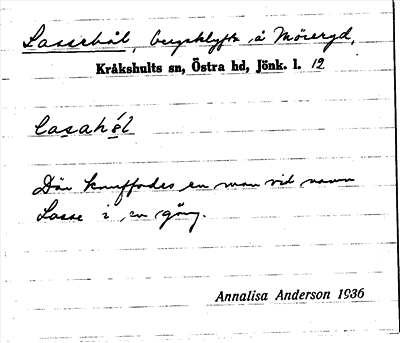 Lassehål, bergsklyfta å Mösseryd,
Kråkshults sn, Östra hd, Jönk. l. 12
lasahål
Där knuffades en man vid namn
Lasse i en gång.
Annalisa Anderson 1936